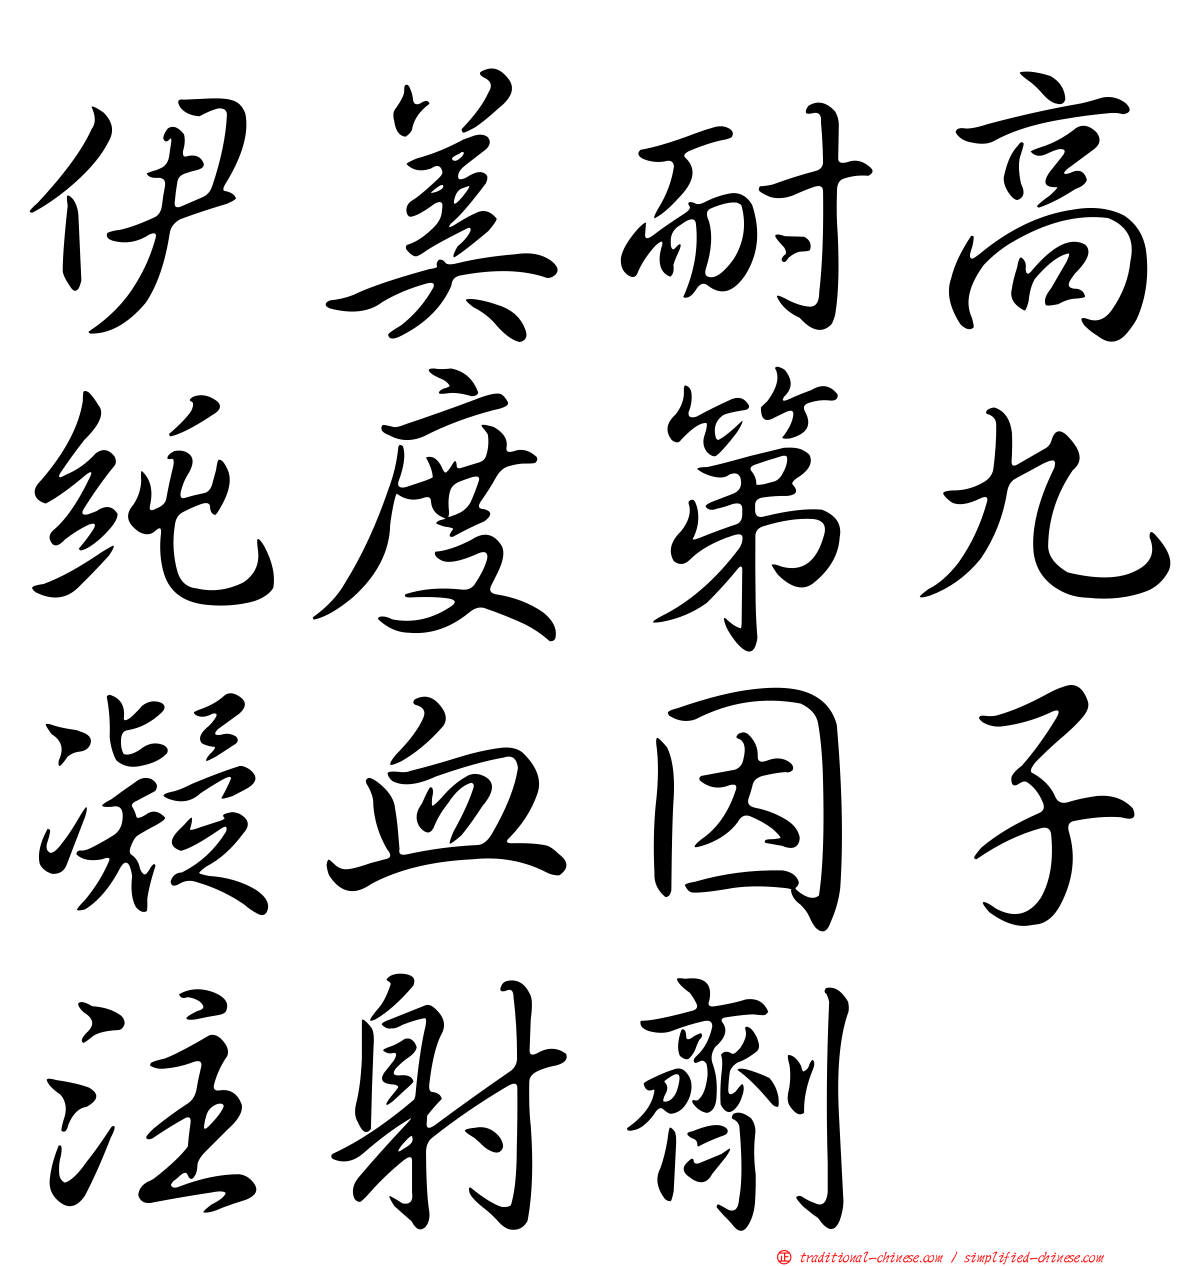 伊美耐高
純度第九
凝血因子
注射劑
正 traditional-chinese.com / simplified-chinese.com